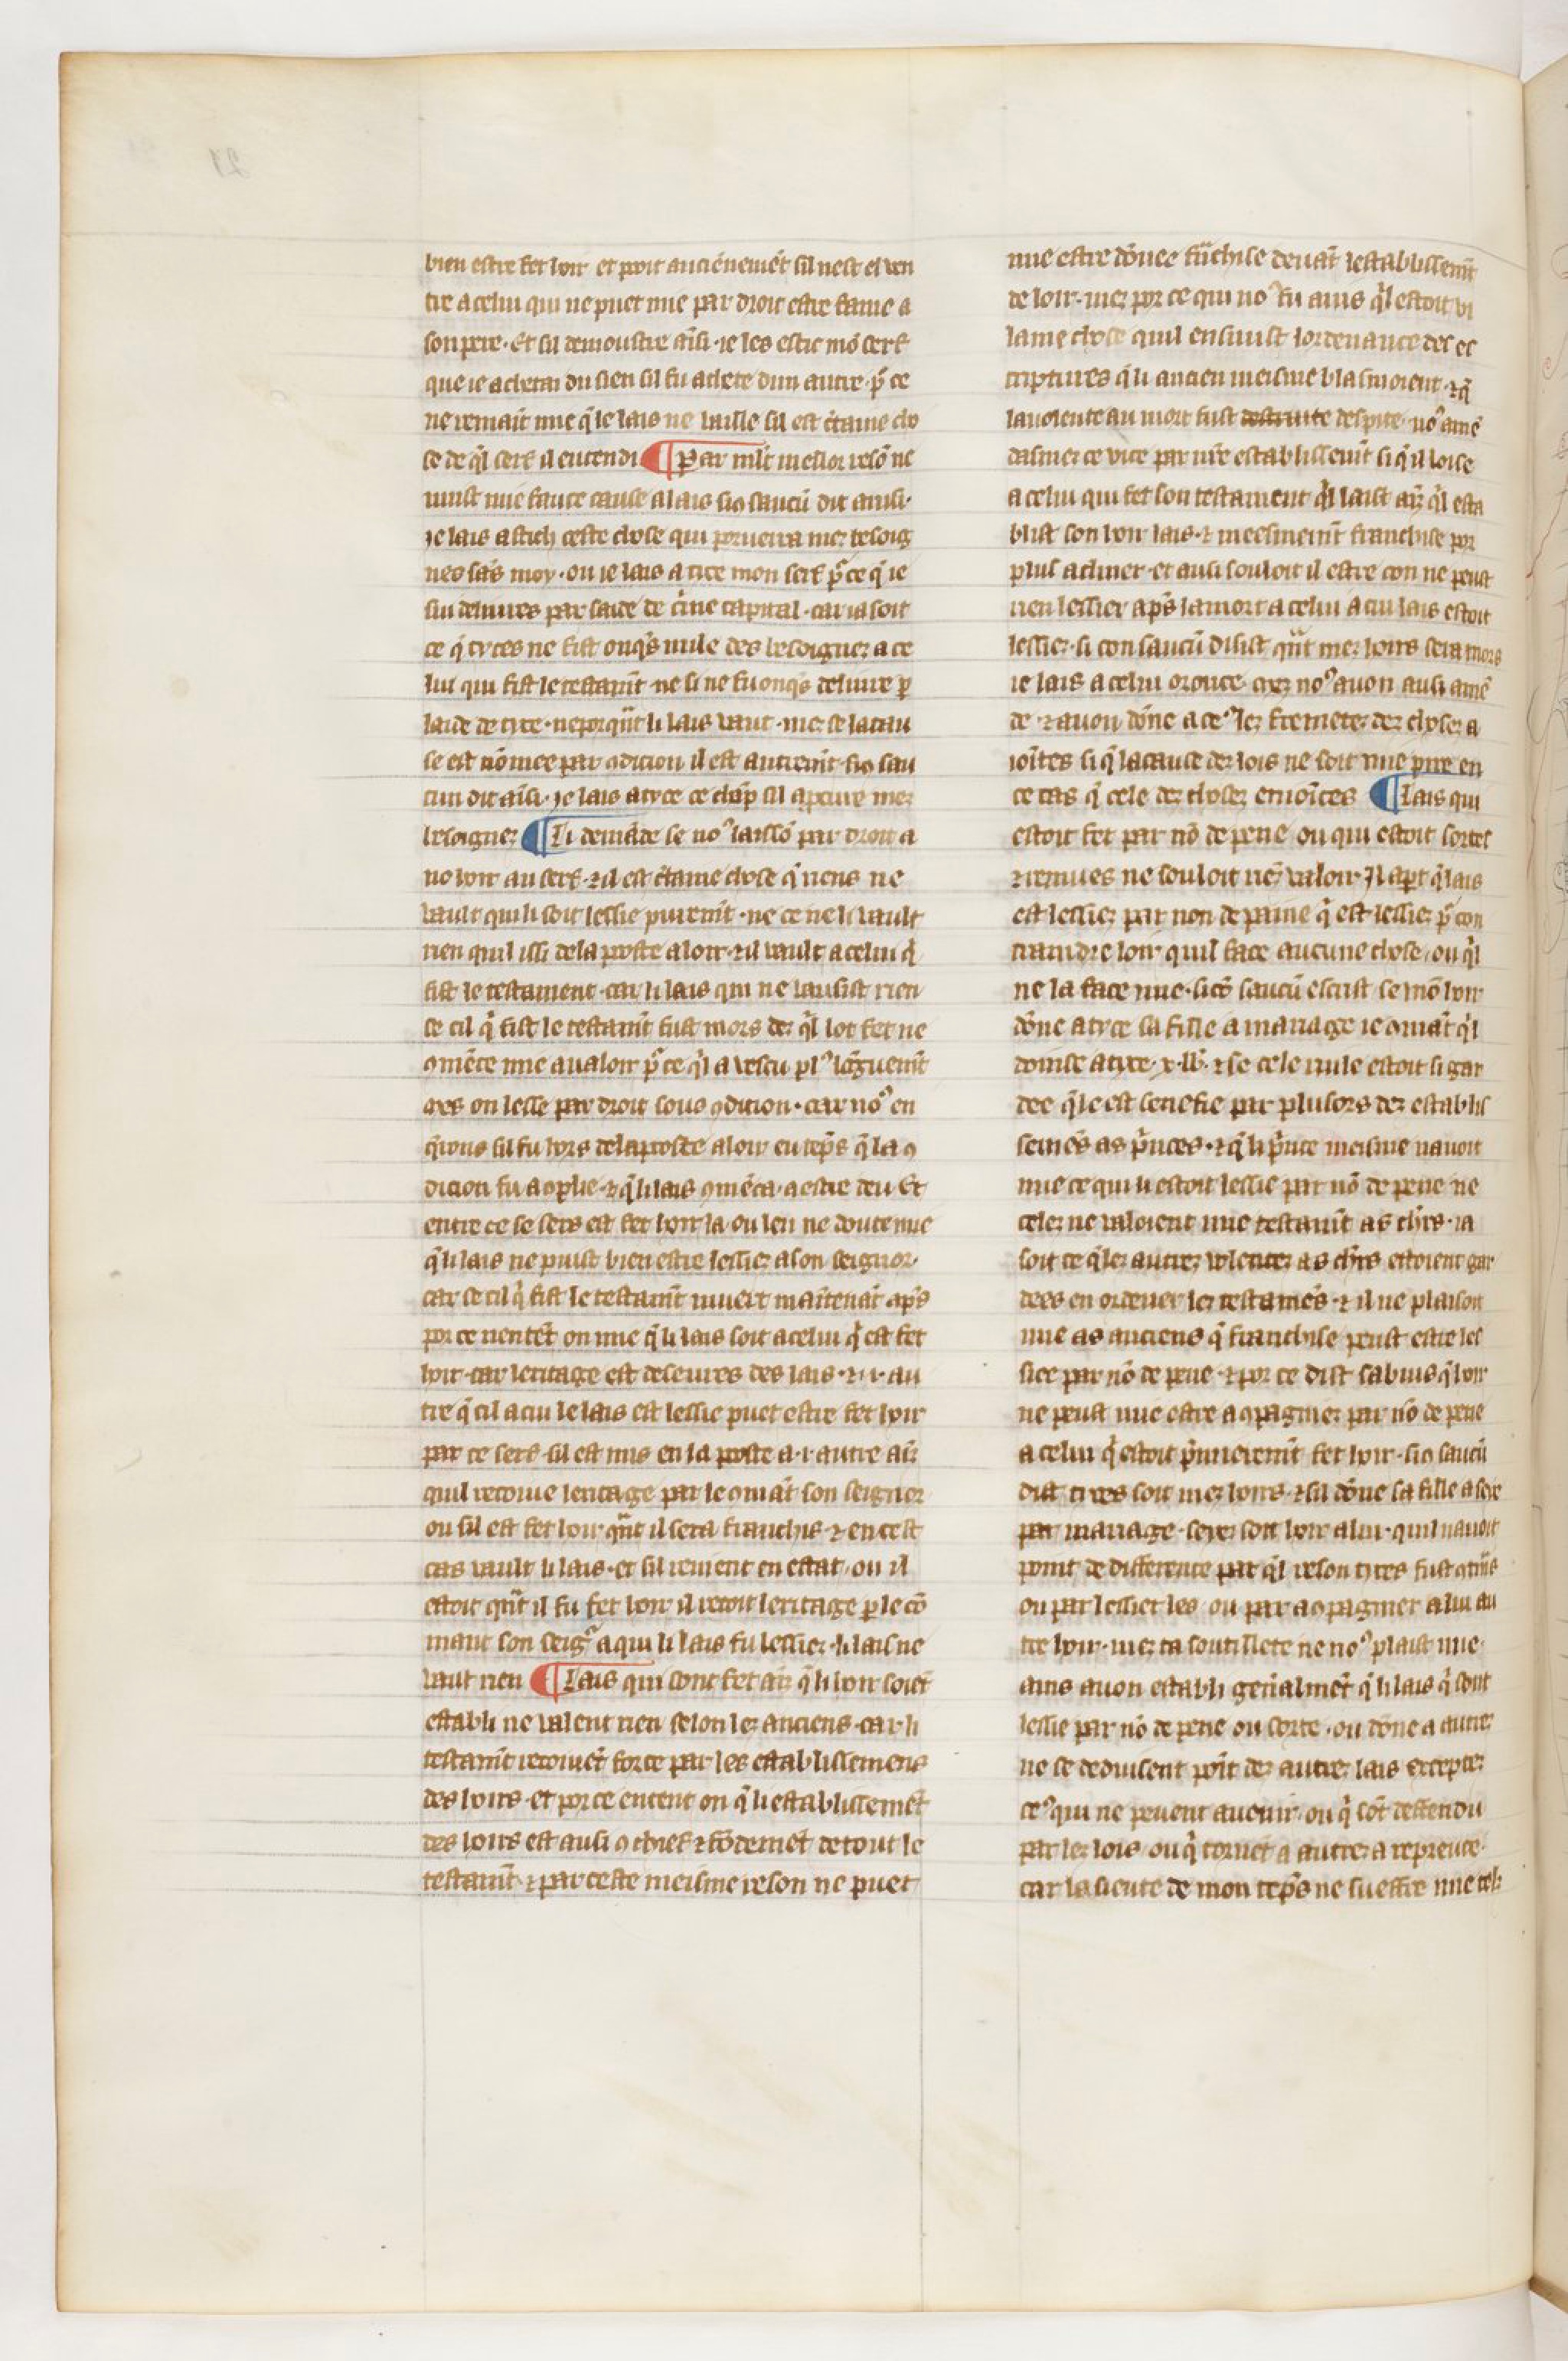 bien estre fet hoir et poit anciēnemēt sil nest el ven
tre a celui qui ne puet mie par droit estre fame a
son pere. Et sil demoustre aīsi. ie les estic mō serf
que ie achetai du sien sil fu achete dun autre. pͬ ce
ne remaīt mie q̄ le lais ne vaille sil est c̾taine cho
se de q̄l serf il entendi ¶ Par ml̄t meilor resō ne
nuist mie fauce cause a lais sicō saucū dit ausi.
ie lais a stich ceste chose qui porverra mez besoig
nes sās moy. ou ie lais a tice mon serf pͬ ce q̄ ie
sui delivres par saide de crime capital. car ia soit
ce q̄ tyces ne fist onqs nule des besoignez a ce
lui qui fist le testam̄t ne si ne fu onqs delivre ꝑ
laide de tyce. neporq̄nt li lais vaut. mes se la cau
se est nōmee par ꝯdicion il est autrem̄t sicō sau
cun dit aīsi. ie lais a tyce ce chāp sil a procure mez
besoignez ¶ Li demāde se noꝰ laissō par droit a
no hoir au serf. ⁊ il est c̾taine chose q̄ riens ne
vault qui li soit lessie puremt̄. ne ce ne li vault
rien quil issi de la poste a loir. ⁊ il vault a celui q̄
fist le testament. car li lais qui ne lausist rien
se cil q̄ fist le testam̄t fust mors dez q̄l lot fet ne
ꝯmēce mie a valoir pͬ ce q̄l a vescu plꝰ lōguem̄t
ares on lesse par droit sous ꝯdicion. car noꝰ en
q̄rons sil fu hors de la poste a loir en tēps q̄ la ꝯ
dicion fu aꝯplie. ⁊ q̄ li lais ꝯmēca a estre deu Et
entre ce se sers est fet hoir la ou len ne doute mie
q̄ li lais ne puist bien estre lessiez a son seignor.
car se cil q̄ fist le testam̄t muert maītenāt aps
por ce nentēt on mie q̄ li lais soit a celui q̄ est fet
hoir. car leritage est desevres des lais. ⁊ .i. au
tre q̄ cil a cui le lais est lessie puet estre fet hoir
par ce serf. sil est mis en la poste a .i. autre aīz
quil recoive leritage par le ꝯmāt son seignor
ou sil est fet hoir q̄nt il sera franchis. ⁊ en cest
cas vault li lais. et sil revient en estat. ou il
estoit q̄nt il fu fet hoir il recoit leritage ꝑ le cō
mant son seigͬ a qui li lais fu lessiez. li lais ne
vaut rien ¶ Lais qui sont fet aīz q̄ li hoir soiēt
establi ne valent rien selon lez anciens. car li
testam̄t recoivēt force par les establissemens
des hoirs. et por ce entent on q̄ li establissemēt
des hoirs est ausi ꝯ chief ⁊ fōdemēt de tout le
testam̄t. ⁊ par ceste meisme reson ne puet
mie estre dōnee frāchise devāt lestablissem̄t
de loir. mez por ce qui noꝰ fu avis q̄l estoit vi
laine chose quil ensuivist lordenance des es
criptures q̄ li ancien meisme blasmoient. ⁊ q̄
la volente au mort fust destruite despite. noꝰ amē
dasmez ce vice par nr̄e establissem̄t si q̄ il loise
a celui qui fet son testament q̄l laist aīz q̄l esta
blist son hoir lais. ⁊ meesmem̄t franchise por
plus aclinet. et ausi souloit il estre con ne peust
rien lessier aps la mort a celui a cui lais estoit
lessiez. si con saucū disist q̄nt mez hoirs sera mors
ie lais a celui oronce. mez noꝰ avon ausi amē
de. ⁊ avon dōne a ceꝰ lez fremetez dez chosez a
ioītes si q̄ la cause dez lois ne soit mie pire en
ce cas q̄ cele dez chosez etnoīces ¶ Lais qui
estoit fet par nō de pene ou qui estoit sortes
⁊ remues ne souloit riē valoir. Il apt q̄ lais
est lessiez par non de paine q̄ est lessiez pͬ con
traindre loir quil face aucune chose. ou q̄l
ne la face mie. sicō saucū escrist se mō hoir
dōne a tyce sa fille a mariage ie ꝯmāt q̄l
doinse a tyce .x. lb̄. ⁊ se cele riule estoit si gar
dee q̄le est senefie par plusors dez establis
semēs as p̄nces. ⁊ q̄ li p̄nce meisme navoit
mie ce qui li estoit lessie par nō de pene ne
celez ne valoient mie testam̄t as ch̄rs. ia
soit ce q̄ lez autrez volentez as ch̄rs estoient gar
dees en ordener lez testamēs. ⁊ il ne plaisoit
mie as anciens q̄ franchise peust estre les
siee par nō de pene. ⁊ por ce dist sabins q̄ loir
ne peust mie estre aꝯpagniez par nō de pene
a celui q̄ estoit p̄mierem̄t fet hoir. sicō saucū
dist tyces soit mez hoirs. ⁊ sil dōne sa fille a seie
par mariage. seyez soit hoir a lui. quil navoit
point de difference par q̄l reson tyces fust ꝯtr̄ns
ou par lessier les. ou par aꝯpagnier a lui au
tre hoir. mez ta soutillete ne noꝰ plaist mie.
ains avon establi gen̄ialmēt q̄ li lais q̄ sont
lessie par nō de pene ou sorte. ou dōne a autre
ne se devisent poīt dez autrez lais exceptez
ceꝰ qui ne pevent avenir. ou q̄ sōt deffendu
par lez lois. ou q̄ tornēt a autrez a reprence.
car la siente de mon tēps ne sueffre mie tels